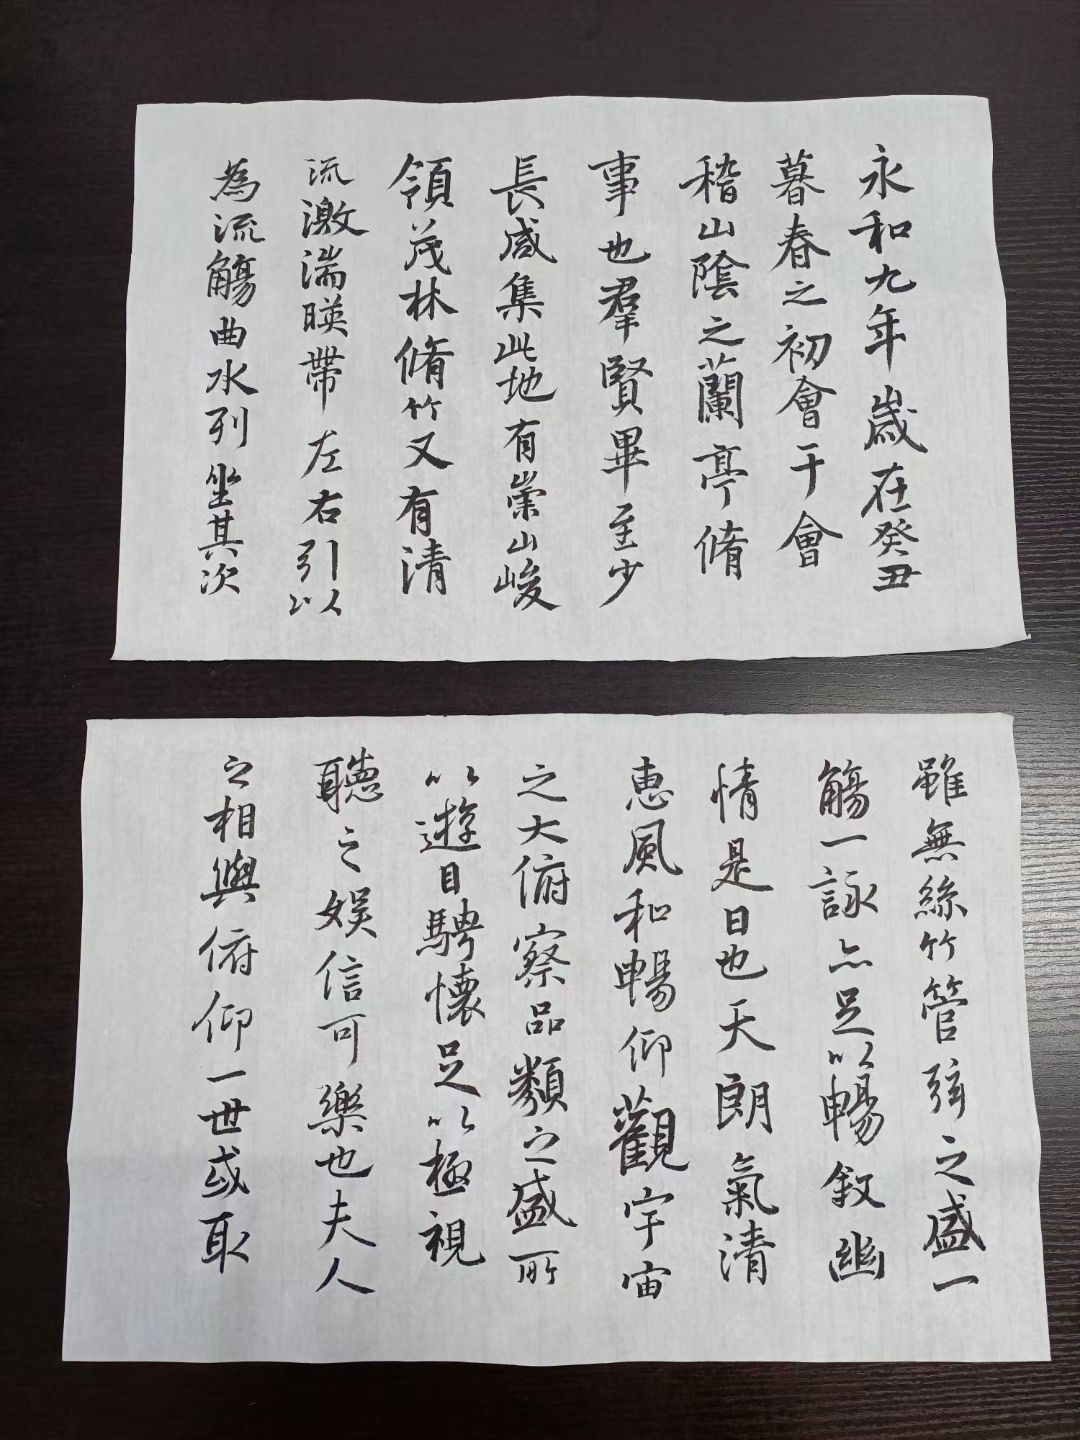 永和九年歲在癸丑
暮春之初會于會
稽山陰之蘭亭脩
事也羣賢畢至少
長咸集此地有崇山峻
領茂林脩竹又有清
流激湍暎帶左右引以
為流觴曲水列坐其次
雖無絲竹管弦之盛一
觴一詠亦足以暢敘幽
情是日也天朗氣清
惠風和暢仰觀宇宙
之大俯察品類之盛所
以遊目騁懷足以極視
聽之娛信可樂也夫人
之相與俯仰一世或取